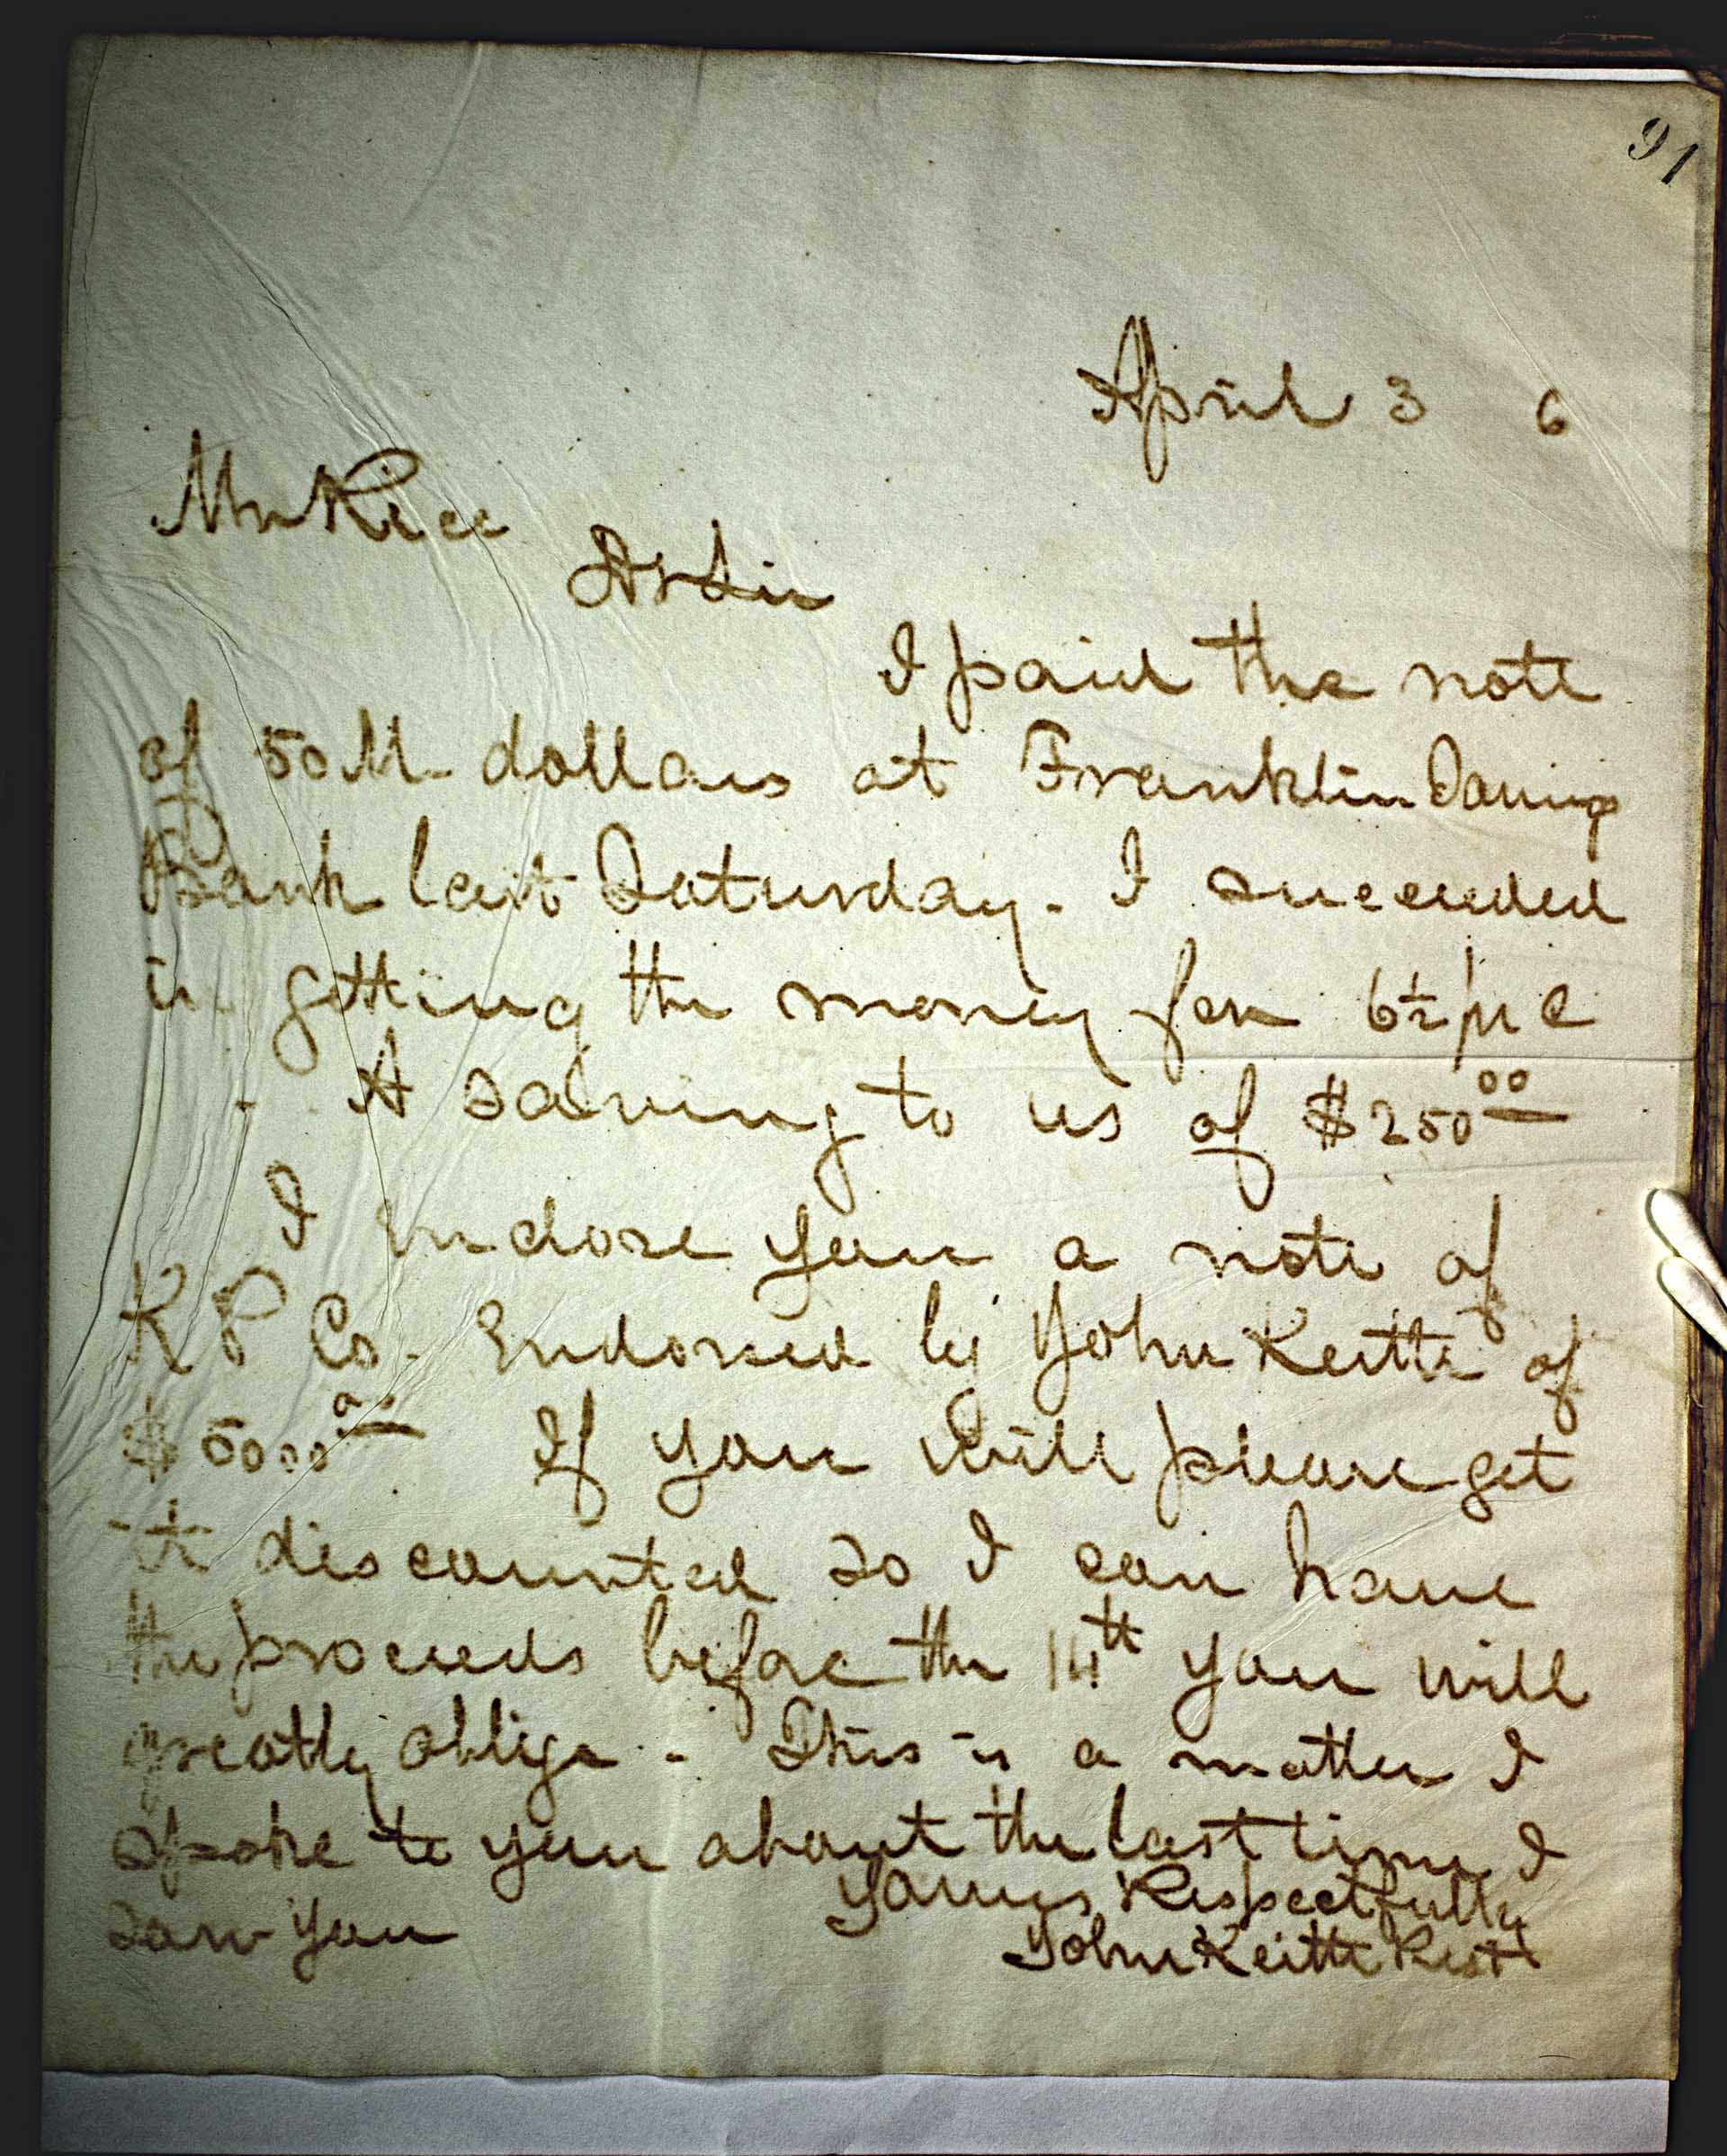 91
April 3 6
Mr Rice
Dr Sir
I paid the note
of 50 M dollars at Franklin Savings
Bank last Saturday. I succeeded
in getting the money for 6½ pr c
- A saving to us of $250 00
I inclose you a note of
K P Co. Endorsed by John Keith of
$ 5000 00 If you will please get
it discounted so I can have
the proceeds before the 14th you will
greatly oblige - This is a matter I
spoke to you about the last time I
saw you
Yours Respectfully
John Keith